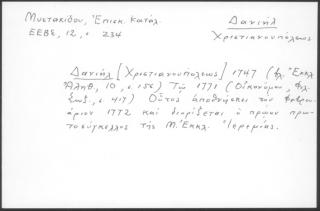 Μυστακίδου, Ἐπισκ. Κατάλ.
ΕΕΒΣ, 12, σ 234
Δανιήλ
Χριστιανουπόλεως
Δανιήλ [Χριστιανουπόλεως] 1747 (Φλ. Ἐκκλ.
Ἀλήθ, 10, σ. 156) Τῷ 1771 (Οἰκονόμου, Φλ.
σ. 417) Οὗτος ἀποθνήσκει τὸν Φεβρου-
άριον 1772 καὶ διορίζεται ὁ πρώην πρω-
τοσύγκελλος τῆς Μ. Ἐκκλ. Ἱερεμίας.